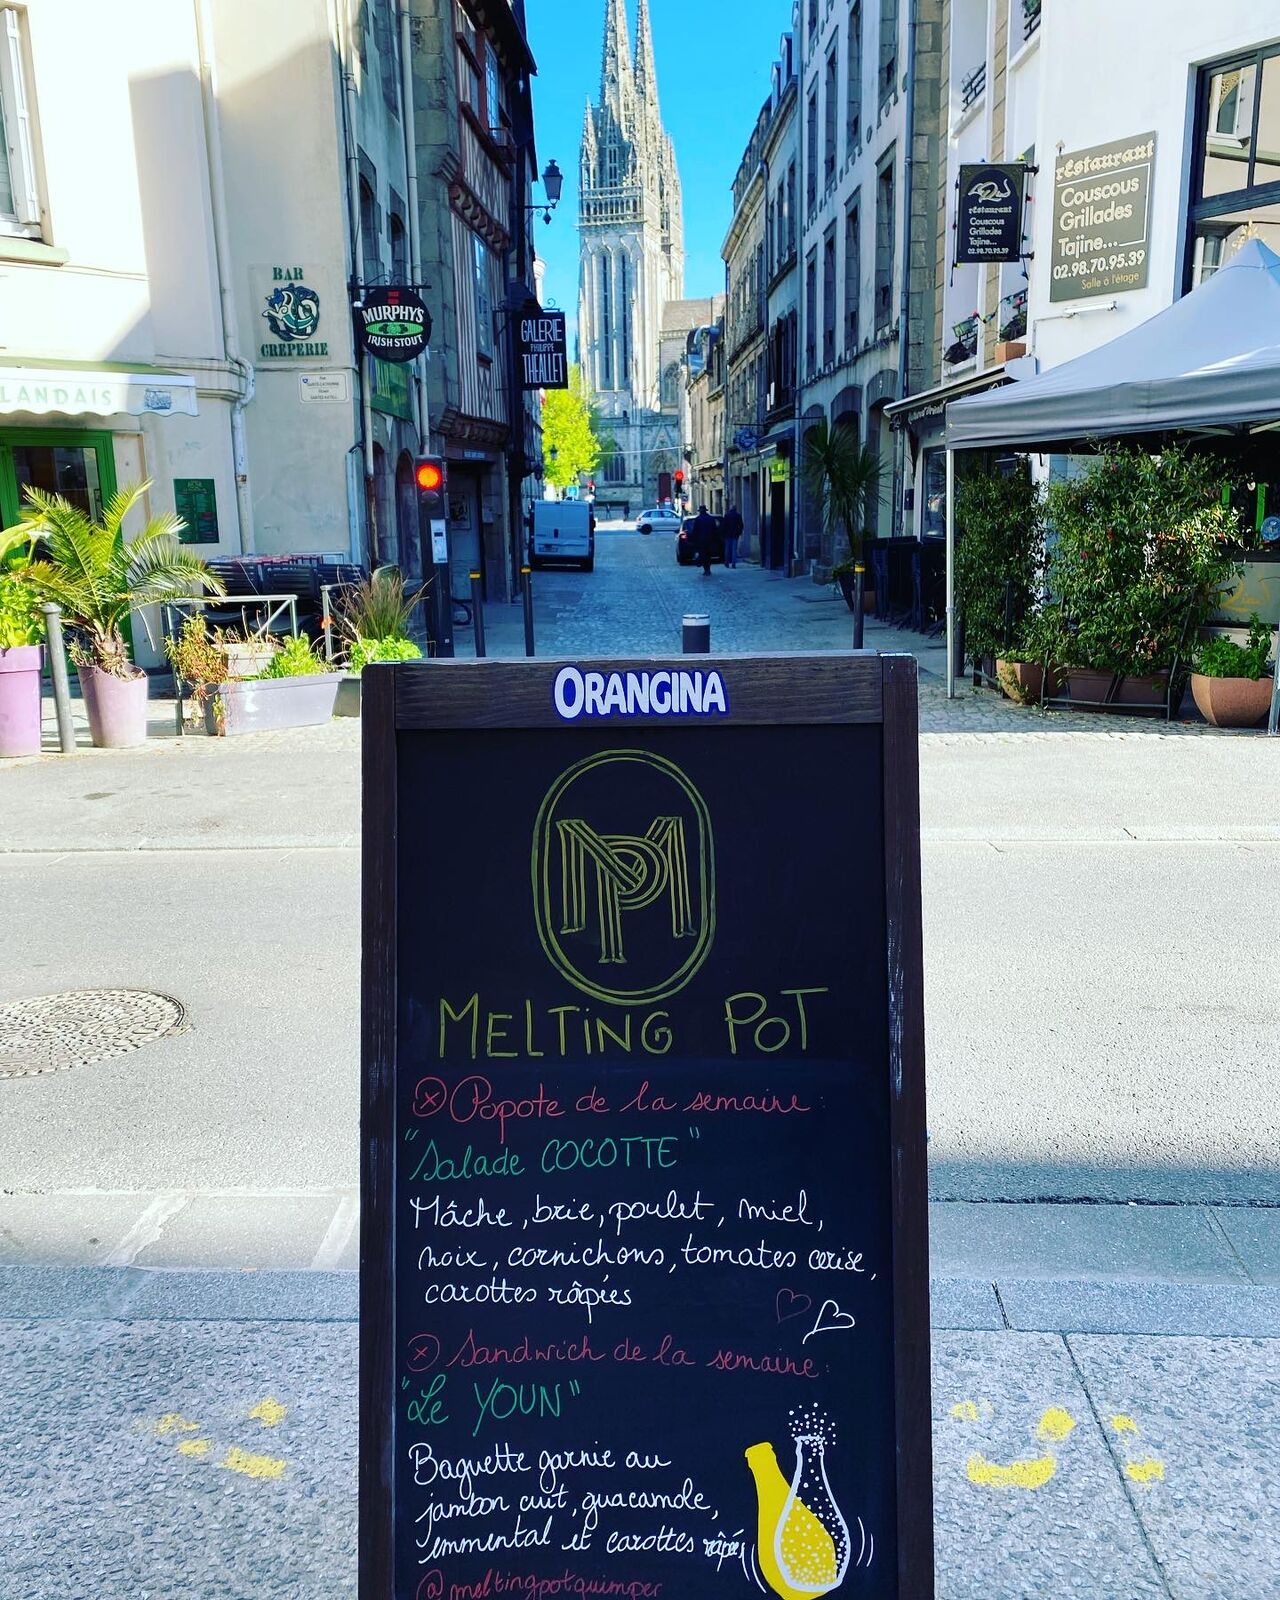 BAR
CREPERIE
MURPHY'S
IRISH STOUT
GALERIE
PHILIPPE
THEALLET
LANDAIS
réstaurant
Couscous
Grillades
Tajine...
02.98.70.95.39
réstaurant
Couscous
Grillades
Tajine...
02.98.70.95.39
Salle à l'étage
ORANGINA
MP
MELTiNG POT
Popote de la semaine :
"Salade COCOTTE"
Mâche, brie, poulet, miel,
noix, cornichons, tomates cerise,
carottes râpées
Sandwich de la semaine :
"Le YOUN"
Baguette garnie au
jambon cuit, guacamole,
emmental et carottes râpées
@meltingpotquimper